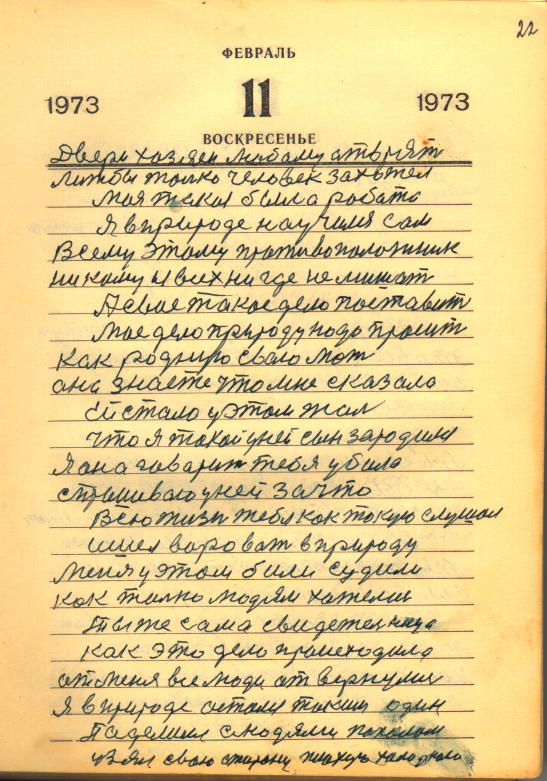 22
ФЕВРАЛЬ
1973 11 1973
ВОСКРЕСЕНЬЕ
Двери хозяен любому
лижбы толко человек захътел
моя такая была робота
Я в природе научился сам
Всему этому противоположник
никому и всех ни где не мишат
А свое такое дело поставит
Мое дело природу надо просит
как родную свою мат
она знаете что мне сказала
Ей стало у этом жал
что я такой у ней сын зародился
Я она говарит тебя убила
спрашиваю у ней за что
Всю жизн тебя как такую слушал
ишел вороват в природу
Меня у этом были судили
как толко людям хотелис
Ты же сама свидетелница
как это дело происходило
от меня все люди отвернулис
Я в природе остался таким один
Поделился с людями пополам
Взял свою сторону плохую холодного